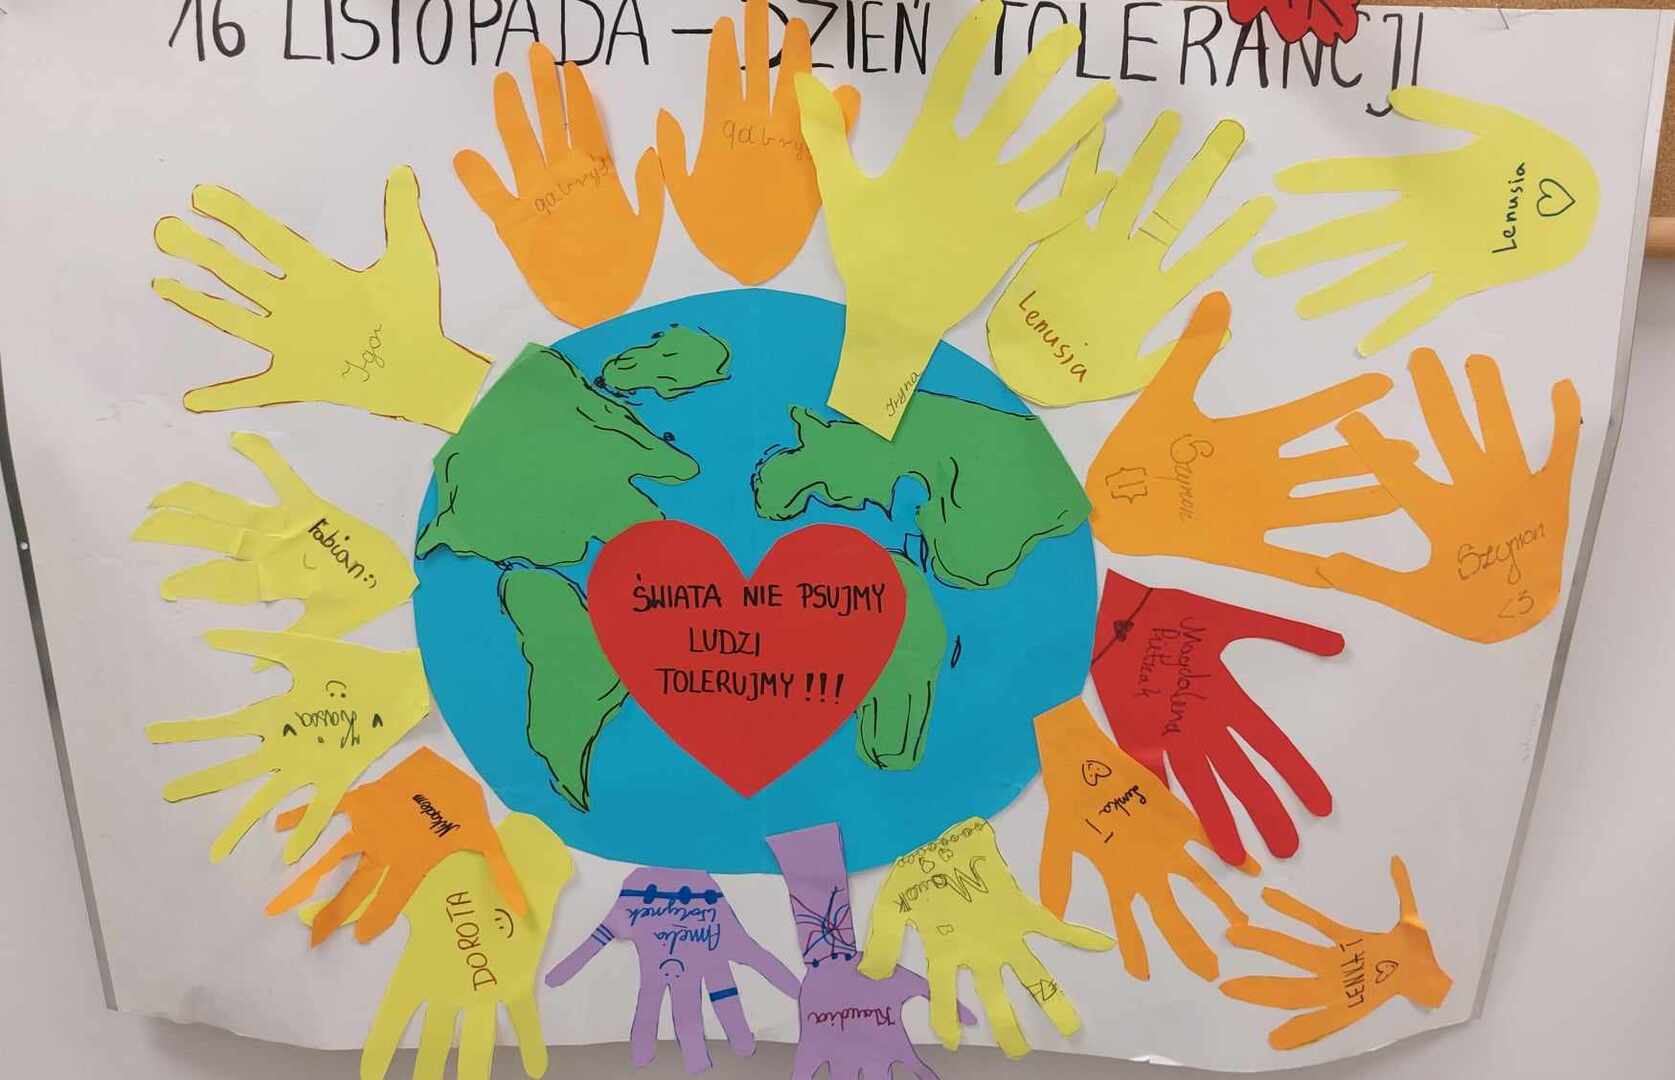 16 LISTOPADA - DZIEŃ TOLERANCJI
gabryś
gabryś
Lenusia
Lenusia
Igor
Iryna
Szymon
Szymon
<3
Fabian :)
ŚWIATA NIE PSUJMY
LUDZI
TOLERUJMY !!!
Magdalena
Pietrzak
Lenka T
DOROTA
Amelia
Wolynek
Klaudia
LENKA T